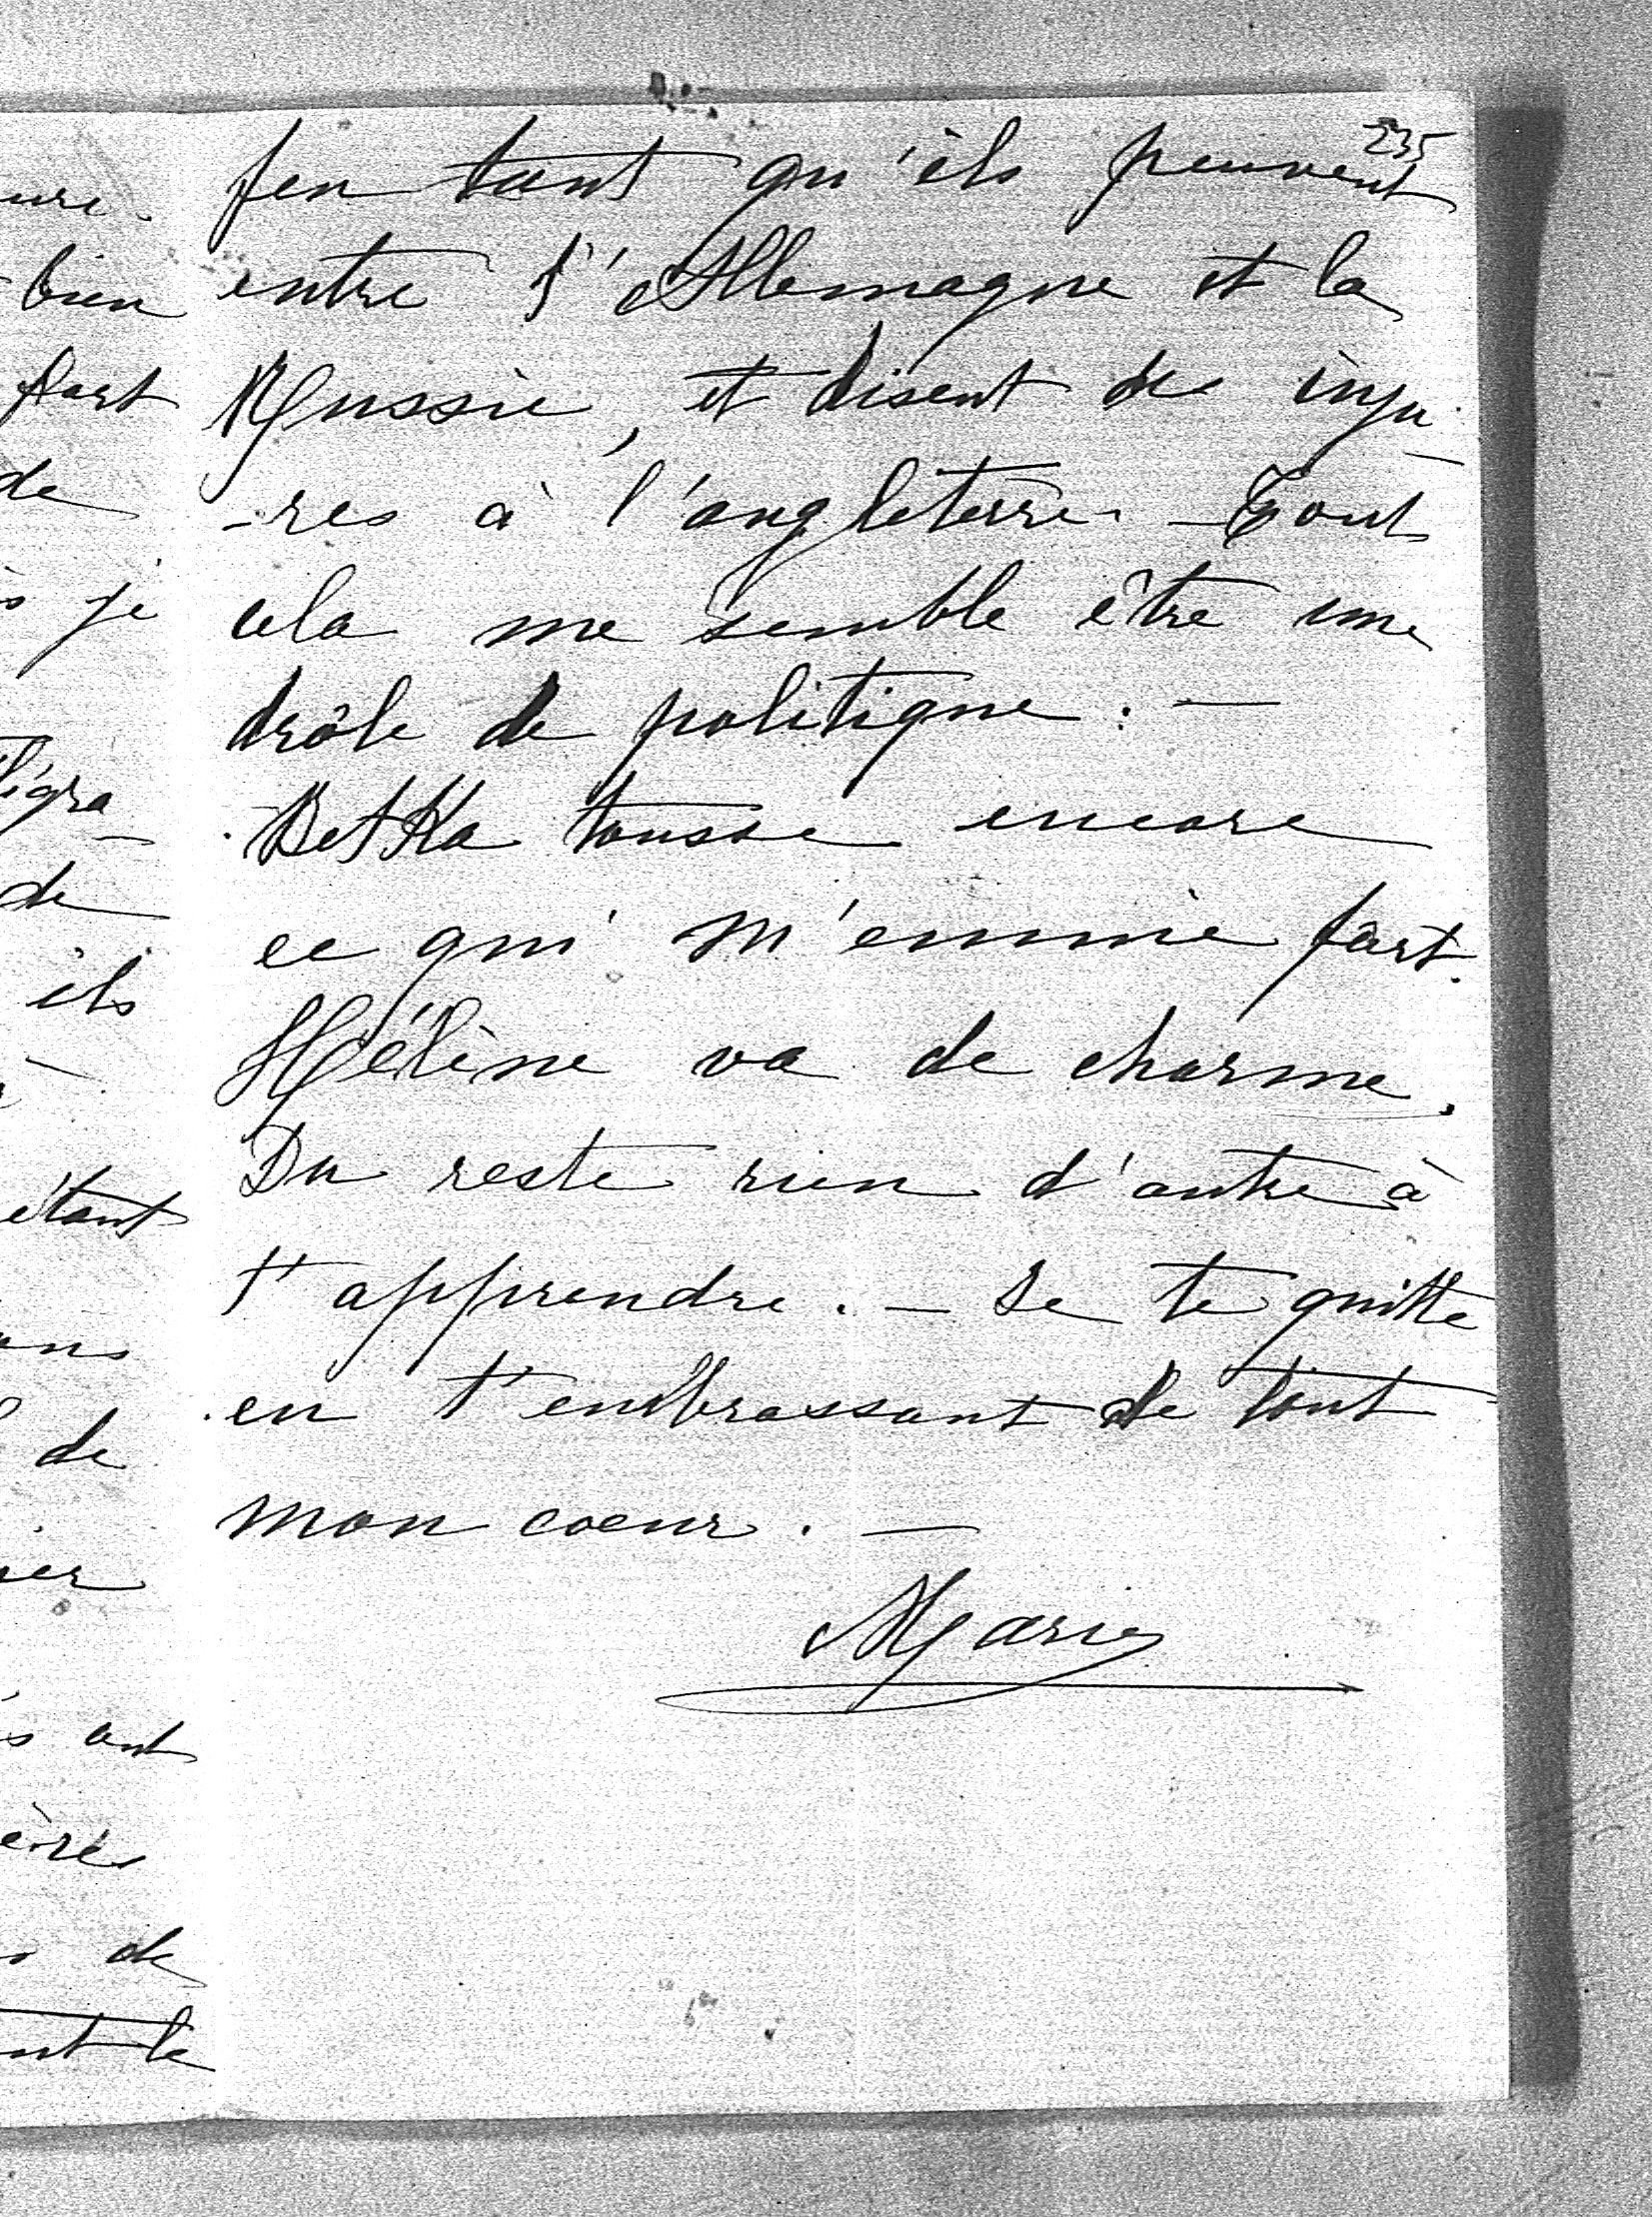 235
feu tant qu'ils peuvent
entre l'Allemagne et la
Russie, et disent des inju-
-res à l'angleterre. - Tout
cela me semble être une
drôle de politique. -
Betka tousse encore
ce qui m'ennuie fort.
Hélène va de charme.
Du reste rien d'autre à
t'apprendre. - Je te quitte
en t'embrassant de tout
mon coeur. -
Marie
bien
fort
de
je
de
ils
étant
de
ont
de